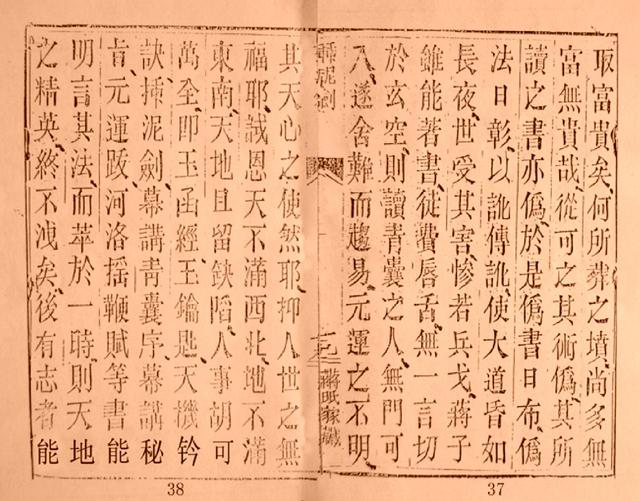 取富貴矣何所葬之墳尚多無
富無貴哉從可之其術僞其所
讀之書亦僞於是僞書日布僞
法日彰以訛傳訛使大道昏如
長夜世受其害慘若兵戈蔣子
雖能著書徒費唇舌無一言切
於玄空則讀青囊之人無門可
入遂舍難而趨易元運之不明
插泥劍
蔣氏家藏
其天心之使然耶抑人世之無
福耶誠恩天不滿西北地不滿
東南天地且留缺陷人事胡可
萬全即玉函經玉鑰匙天機鈐
訣插泥劍幕講青囊序幕講秘
旨元運跋河洛搖鞭賦等書能
明言其法而萃於一時則天地
之精英終不洩矣後有志者能
37
38